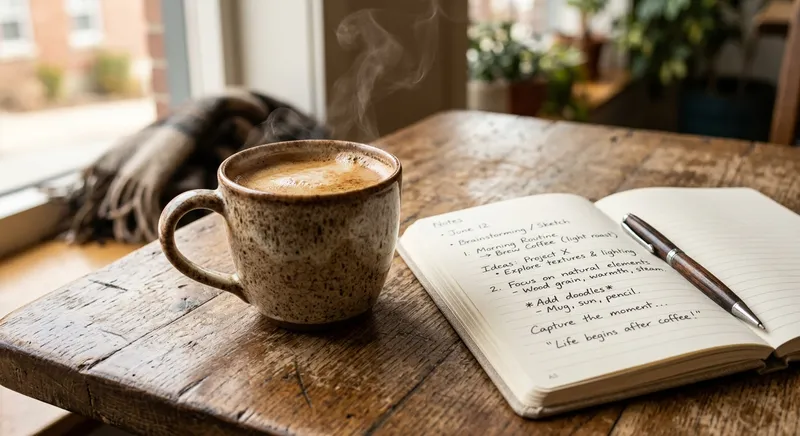 Notes
• June 12
• Brainstorming / Sketch
1. Morning Routine
→ Brew Coffee (light roast)
Ideas: Project X
• Explore textures & lighting
2. Focus on natural elements
- Wood grain, warmth, steam
*Add doodles*
- Mug, sun, pencil.
Capture the moment...
"Life begins after coffee!"